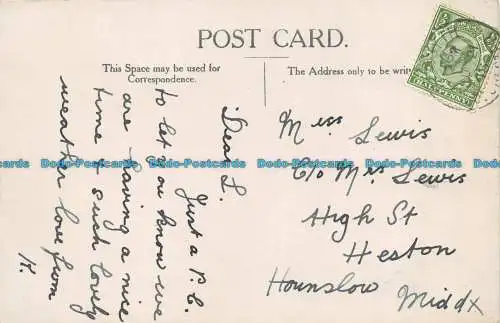 POST CARD.
This Space may be used for
Correspondence.
The Address only to be writ
HALFPENNY
Dear L.
Just a P.C.
to let you know we
are having a nice
time & such lovely
weather love from
K.
Miss Lewis
C/o Mrs Lewis
High St
Heston
Hounslow Middx
Dodo-Postcards Dodo-Postcards Dodo-Postcards Dodo-Postcards Dodo-Postcards